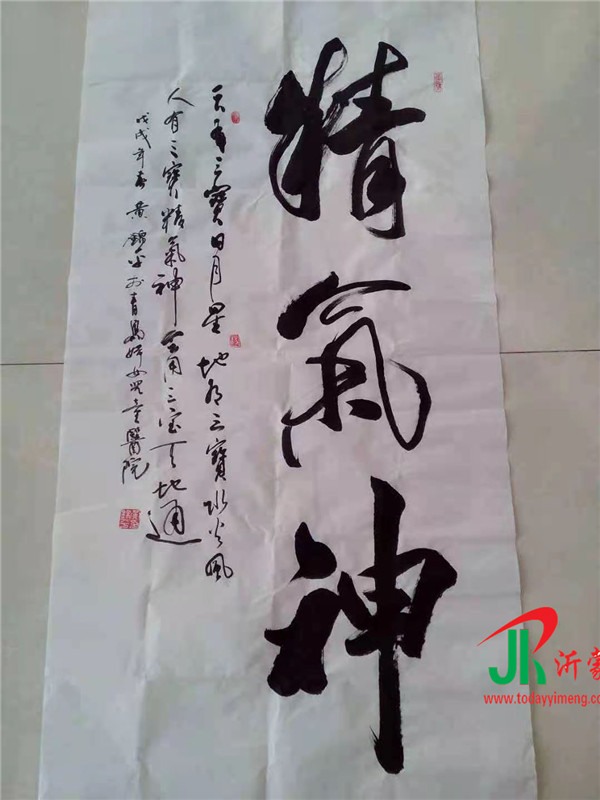 精氣神
天有三寶日月星地有三寶水火風
人有三寶精氣神善用三宝天地通
戊戌年春黄錦平於青島婦女兒童醫院
JK沂蒙
www.todayyimeng.co